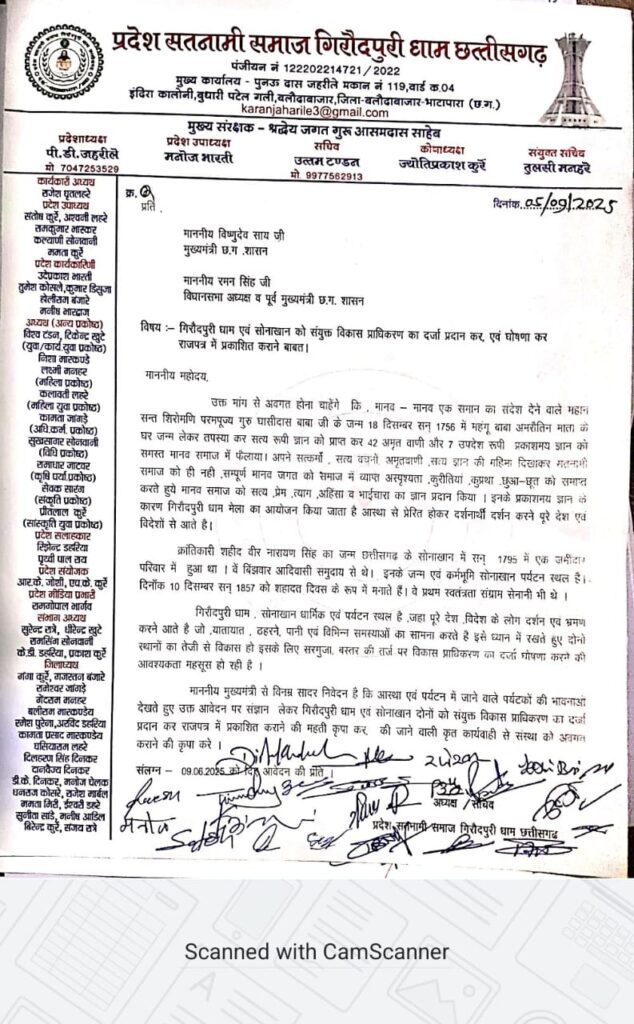 प्रदेश सतनामी समाज गिरौदपुरी धाम छत्तीसगढ़
पंजीयन नं 122202214721/2022
मुख्य कार्यालय - पुनऊ दास जहरीले मकान नं 119,वार्ड क.04
इंदिरा कालोनी,बुधारी पटेल गली,बलौदाबाजार,जिला-बलौदाबाजार-भाटापारा (छ.ग.)
karanjaharile3@gmail.com
मुख्य संरक्षक - श्रद्धेय जगत गुरू आसमदास साहेब
प्रदेशाध्यक्ष
पी.डी.जहरीले
मो. 7047253529
प्रदेश उपाध्यक्ष
मनोज भारती
सचिव
उत्तम टण्डन
मो. 9977562913
कोषाध्यक्ष
ज्योतिप्रकाश कुर्रे
संयुक्त सचिव
तुलसी मनहरे
कार्यकारी अध्यक्ष
राजेश घृतलहरे
प्रदेश उपाध्यक्ष
संतोष कुर्रे, अश्वनी लहरे
रामकुमार भास्कर
कल्याणी सोनवानी
ममता कुर्रे
प्रदेश कार्यकारिणी
उदेप्रकाश भारती
तुमेश कोसले,कुमार डिसुजा
होलीराम बंजारे
मनीष भारद्वाज
अध्यक्ष (अन्य प्रकोष्ठ)
विश्व टंडन, टिकेन्द्र खुटे
(युवा/कार्य युवा प्रकोष्ठ)
निशा मारकण्डे
लक्ष्मी मनहर
(महिला प्रकोष्ठ)
कलावती लहरे
(महिला युवा प्रकोष्ठ)
कामता जांगड़े
(अधि.कर्म. प्रकोष्ठ)
सुखसागर सोनवानी
(विधि प्रकोष्ठ)
रामाधार जाटवर
(कृषि पर्या.प्रकोष्ठ)
सेवक सारंग
(संकृति प्रकोष्ठ)
प्रीतलाल कुर्रे
(सांस्कृति युवा प्रकोष्ठ)
प्रदेश सलाहकार
रिझेन्द्र डहरिया
पृथ्वी पाल राय
प्रदेश संयोजक
आर.के. जोशी, एप.के. कुर्रे
प्रदेश मीडिया प्रभारी
रामगोपाल भार्गव
संभाग अध्यक्ष
सुरेन्द्र रात्रे, धीरेन्द्र खुटे
रामसिंग सोनवानी
के.डी. डहरिया, प्रकाश कुर्रे
जिलाध्यक्ष
गंगा कुर्रे, राजरतन बंजारे
रामेश्वर जांगड़े
मेटराम मनहर
बलीराम मारकण्डेय
रमेश पुरेना,अरविंद डहरिया
कामता प्रसाद मारकण्डेय
घसियाराम लहरे
दिलहरण सिंह दिनकर
दानवैश्य दिनकर
डी.के. दिनकर, मनोज चेलक
धनराज कोसरे, राजेश मार्बल
ममता मिरी, ईश्वरी डहरे
सुनीता साडे, मनीष आडिल
बिरेन्द्र कुर्रे, संजय रात्रे
क्र.
दिनांक 05/09/2025
प्रति,
माननीय विष्णुदेव साय जी
मुख्यमंत्री छ.ग .शासन
माननीय रमन सिंह जी
विधानसभा अध्यक्ष व पूर्व मुख्यमंत्री छ.ग. शासन
विषय :- गिरौदपुरी धाम एवं सोनाखान को संयुक्त विकास प्राधिकरण का दर्जा प्रदान कर, एवं घोषणा कर
राजपत्र में प्रकाशित कराने बाबत।
माननीय महोदय,
उक्त मांग से अवगत होना चाहेंगे कि , मानव – मानव एक समान का संदेश देने वाले महान
सन्त शिरोमणि परमपूज्य गुरु घासीदास बाबा जी के जन्म 18 दिसम्बर सन् 1756 में महंगू बाबा अमरौतिन माता के
घर जन्म लेकर तपस्या कर सत्य रूपी ज्ञान को प्राप्त कर 42 अमृत वाणी और 7 उपदेश रूपी प्रकाशमय ज्ञान को
समस्त मानव समाज में फैलाया। अपने सत्कर्मो , सत्य वचनों अमृतवाणी ,सत्य ज्ञान की महिमा दिखाकर सतनामी
समाज को ही नही ,सम्पूर्ण मानव जगत को समाज में व्याप्त अस्पृश्यता ,कुरीतियां ,कुप्रथा ,छुआ-छूत को समाप्त
करते हुये मानव समाज को सत्य ,प्रेम ,त्याग ,अहिंसा व भाईचारा का ज्ञान प्रदान किया । इनके प्रकाशमय ज्ञान के
कारण गिरौदपुरी धाम गुरु मेला का आयोजन किया जाता है आस्था से प्रेरित होकर दर्शनार्थी दर्शन करने पूरे देश एवं
विदेशों से आते है।
क्रांतिकारी शहीद वीर नारायण सिंह का जन्म छत्तीसगढ़ के सोनाखान में सन् 1795 में एक जमींदार
परिवार में हुआ था । वे बिंझवार आदिवासी समुदाय से थे। इनके जन्म एवं कर्मभूमि सोनाखान पर्यटन स्थल है।
दिनाँक 10 दिसम्बर सन् 1857 को शहादत दिवस के रूप में मनाते हैं। वे प्रथम स्वतंत्रता संग्राम सेनानी भी थे ।
गिरौदपुरी धाम , सोनाखान धार्मिक एवं पर्यटन स्थल है ,जहा पूरे देश ,विदेश के लोग दर्शन एवं भ्रमण
करने आते है जो ,यातायात , ठहरने, पानी एवं विभिन्न समस्याओं का सामना करते है इसे ध्यान में रखते हुए दोनो
स्थानों का तेजी से विकास हो इसके लिए सरगुजा, बस्तर की तर्ज पर विकास प्राधिकरण का दर्जा घोषणा करने की
आवश्यकता महसूस हो रही है ।
माननीय मुख्यमंत्री से विनम्र सादर निवेदन है कि आस्था एवं पर्यटन में जाने वाले पर्यटकों की भावनाओं
देखते हुए उक्त आवेदन पर संज्ञान लेकर गिरौदपुरी धाम एवं सोनाखान दोनों को संयुक्त विकास प्राधिकरण का दर्जा
प्रदान कर राजपत्र में प्रकाशित कराने की महती कृपा कर, की जाने वाली कृत कार्यवाही से संस्था को अवगत
कराने की कृपा करे ।
संलग्न – 09.06.2025 को दिए आवेदन की प्रति ।
अध्यक्ष /सचिव
प्रदेश सतनामी समाज गिरौदपुरी धाम छत्तीसगढ़
मनोज
Scanned with CamScanner